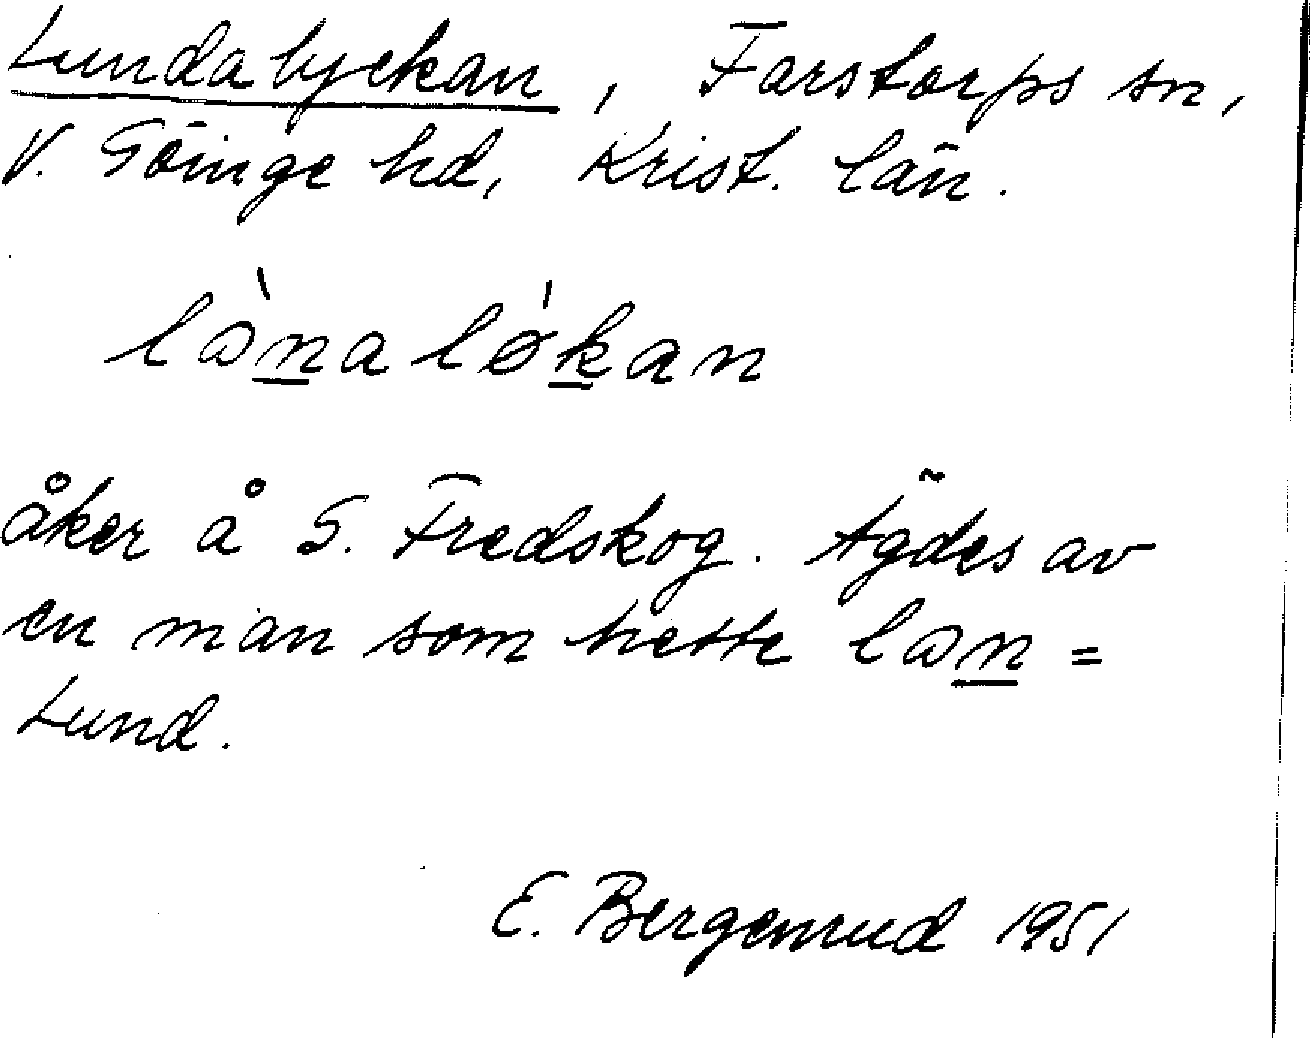 Lundalyckan, Farstorps sn,
V. Göinge hd, Krist. län.
lànalǿkan
åker å S. Fredskog. Ägdes av
en man som hette lan =
Lund.
E. Bergenrud 1951